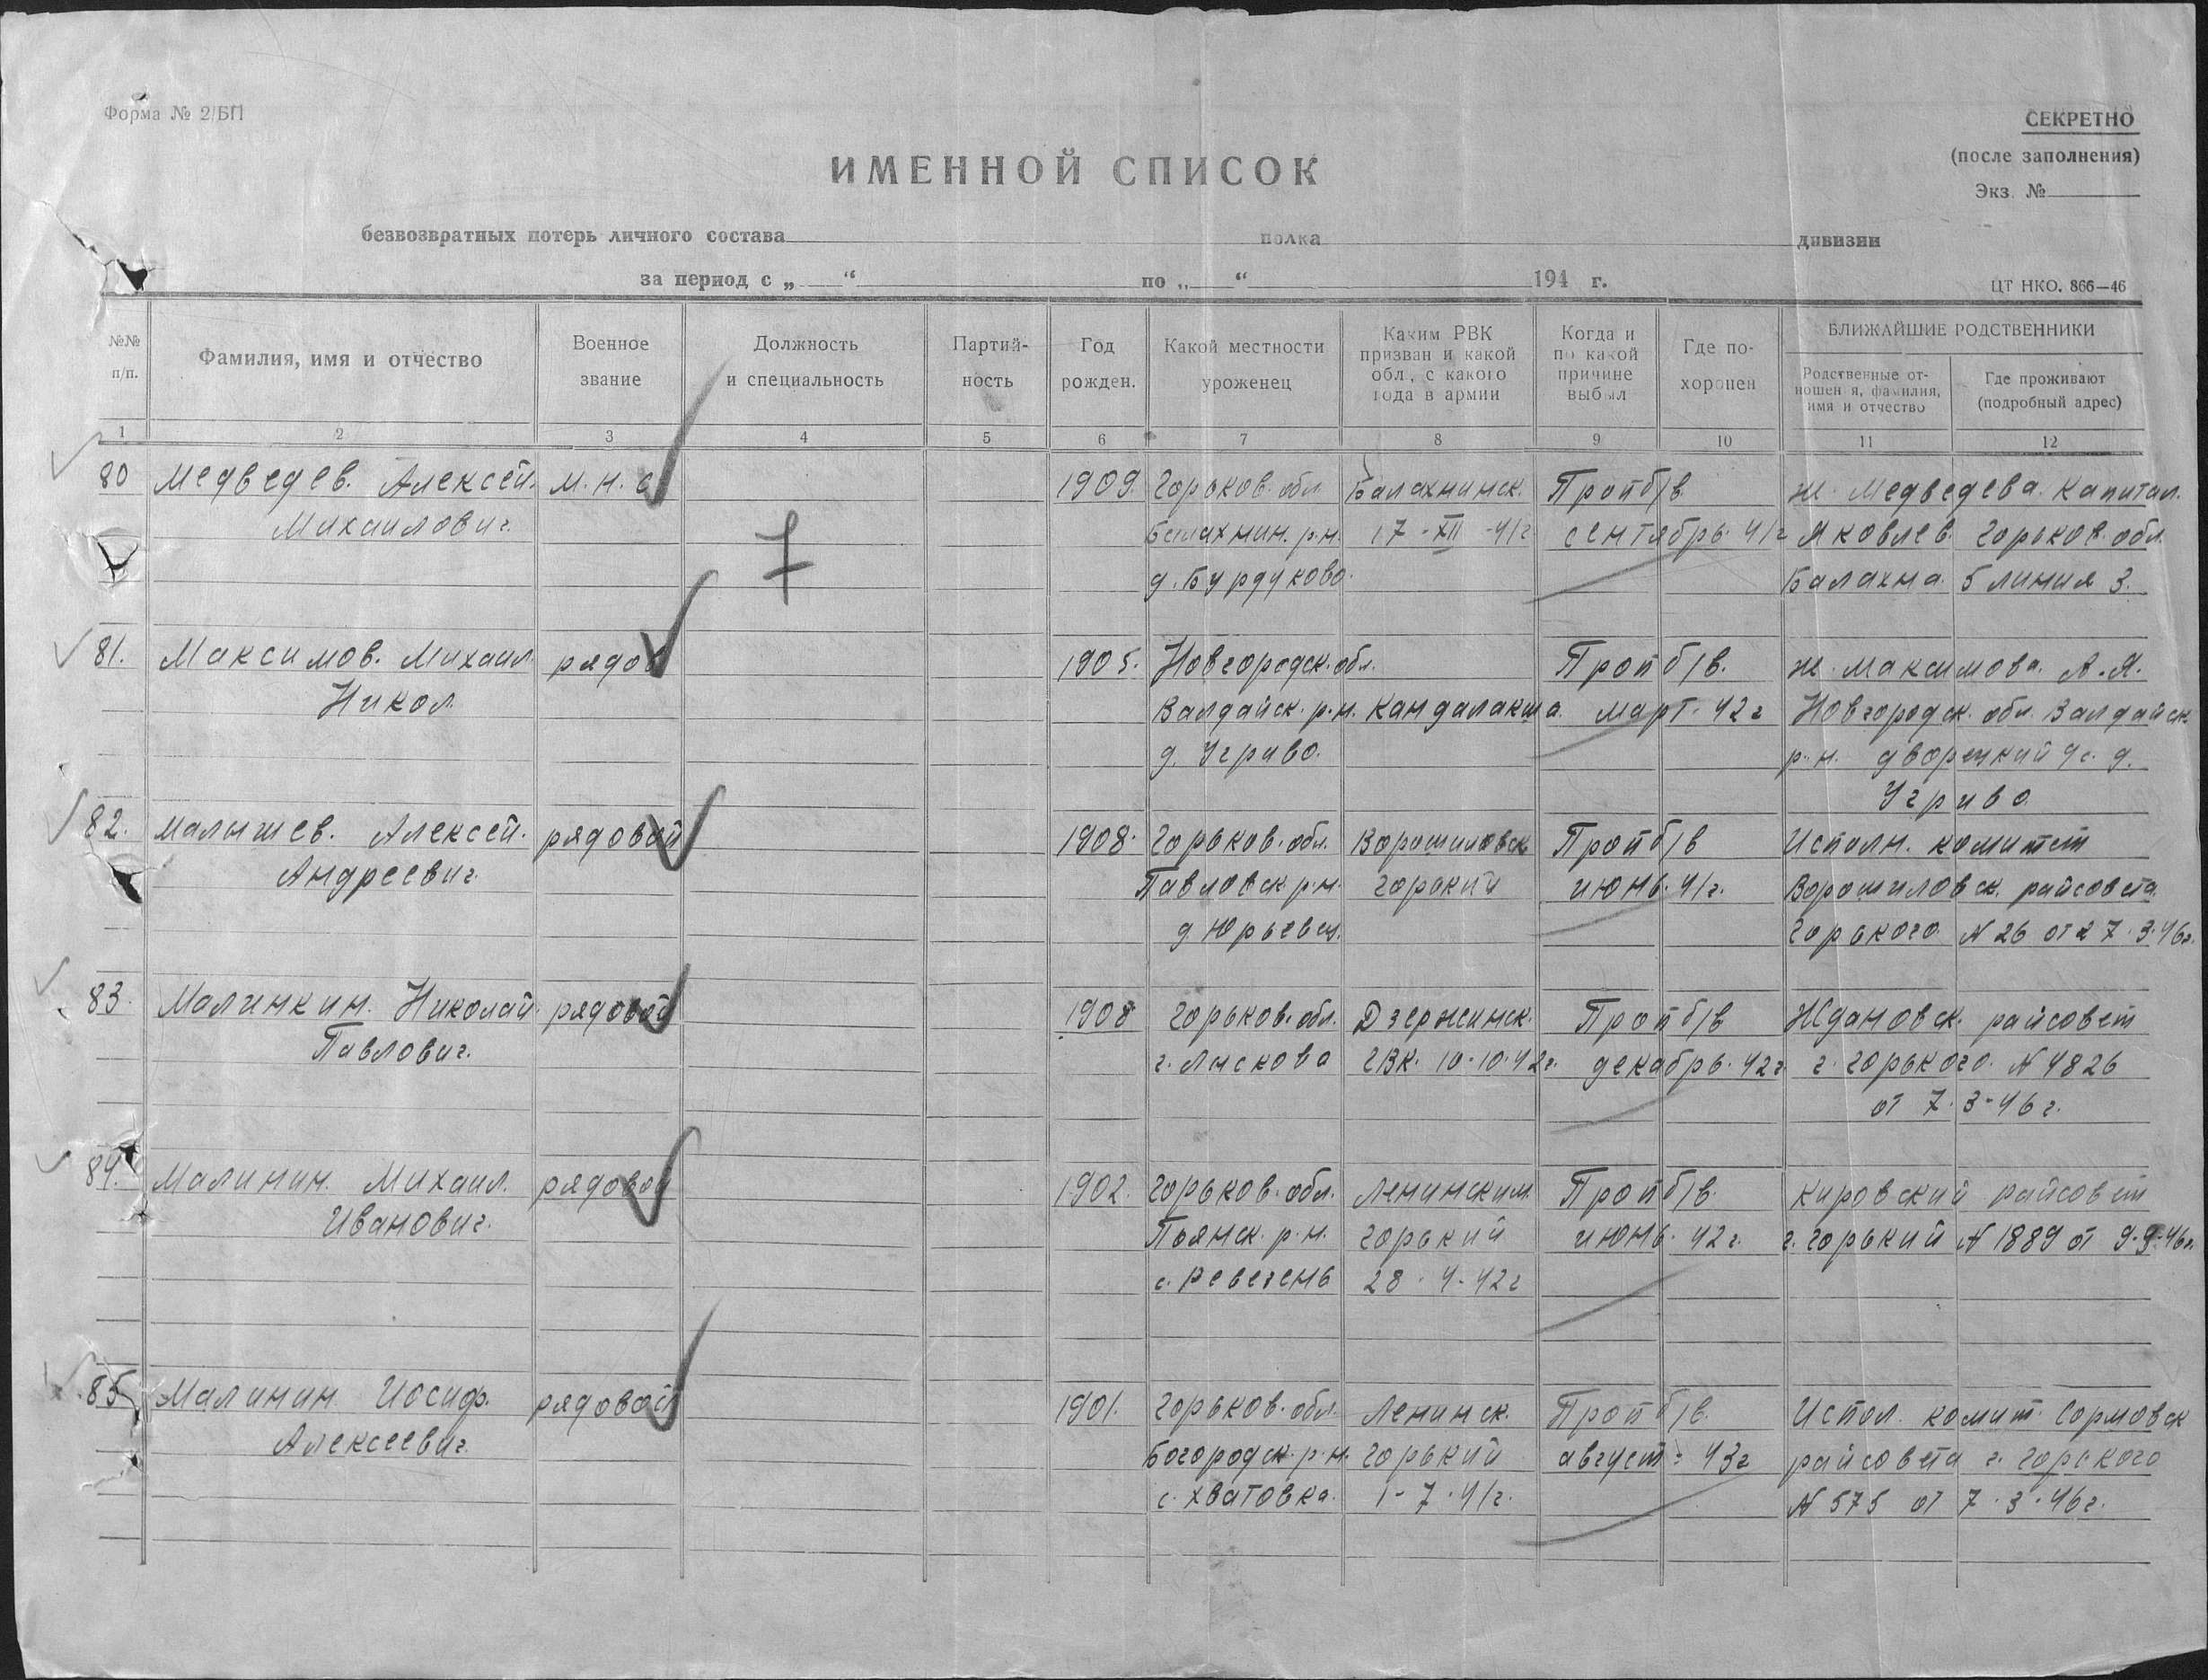 Форма № 2/БП
СЕКРЕТНО
(после заполнения)
Экз. №
ИМЕННОЙ СПИСОК
безвозвратных потерь личного состава полка дивизии
за период с „ “ по „ “ 194 г.
ЦТ НКО. 866—46
№№ п/п.
Фамилия, имя и отчество
Военное звание
Должность и специальность
Партийность
Год рожден.
Какой местности уроженец
Каким РВК призван и какой обл., с какого года в армии
Когда и по какой причине выбыл
Где похоронен
БЛИЖАЙШИЕ РОДСТВЕННИКИ
Родственные отношения, фамилия, имя и отчество
Где проживают (подробный адрес)
1 2 3 4 5 6 7 8 9 10 11 12
80 Медведев. Алексей. м.н.с 1909. Горьков. обл. Балахнинск. Проп б/в. ж. Медведева. Капитал.
Михаилович. Балахнин. р.н. 17-XII-41г сентябрь. 41г Яковлев. Горьков. обл.
д. Бурдуково. Балахна 5 линия 3.
7
81. Максимов. Михаил. рядов 1905. Новгородск. обл. Проп б/в. ж. Максимова. А.Я.
Никол. Валдайск. р.н. Кандалакша. март. 42г Новгородск. обл. Валдайск.
д. Угриво. р.н. дворецкий с. д.
Угриво.
82. Малышев. Алексей. рядовой 1908. Горьков. обл. Ворошиловск Проп б/в Исполн. комитет
Андреевич. Павловск. р.н. Горький июнь. 41г. Ворошиловск. райсовета.
д. Юрьевец. Горького. N 26 от 27.3.46г.
83. Малинкин. Николай. рядовой 1908 Горьков. обл. Дзержинск. Проп б/в Ждановск. райсовет
Павлович. г. Лысково ГВК. 10.10.42г. декабрь. 42г г. Горького. N 4826
от 7.3-46г.
84. Малинин. Михаил. рядовой 1902. Горьков. обл. Ленинским. Проп б/в. Кировский райсовет
Иванович. Пьянск. р.н. Горький июнь. 42г. г. Горький N 1889 от 9.3-46г.
с. Ревезень 28.4-42г
85. Малинин Иосиф. рядовой 1901. Горьков. обл. Ленинск. Проп б/в. Испол. комит. Сормовск
Алексеевич. Богородск. р.н. Горький август- 43г райсовета г. Горького
с. Хватовка. 1-7.41г. N 575 от 7.3.46г.